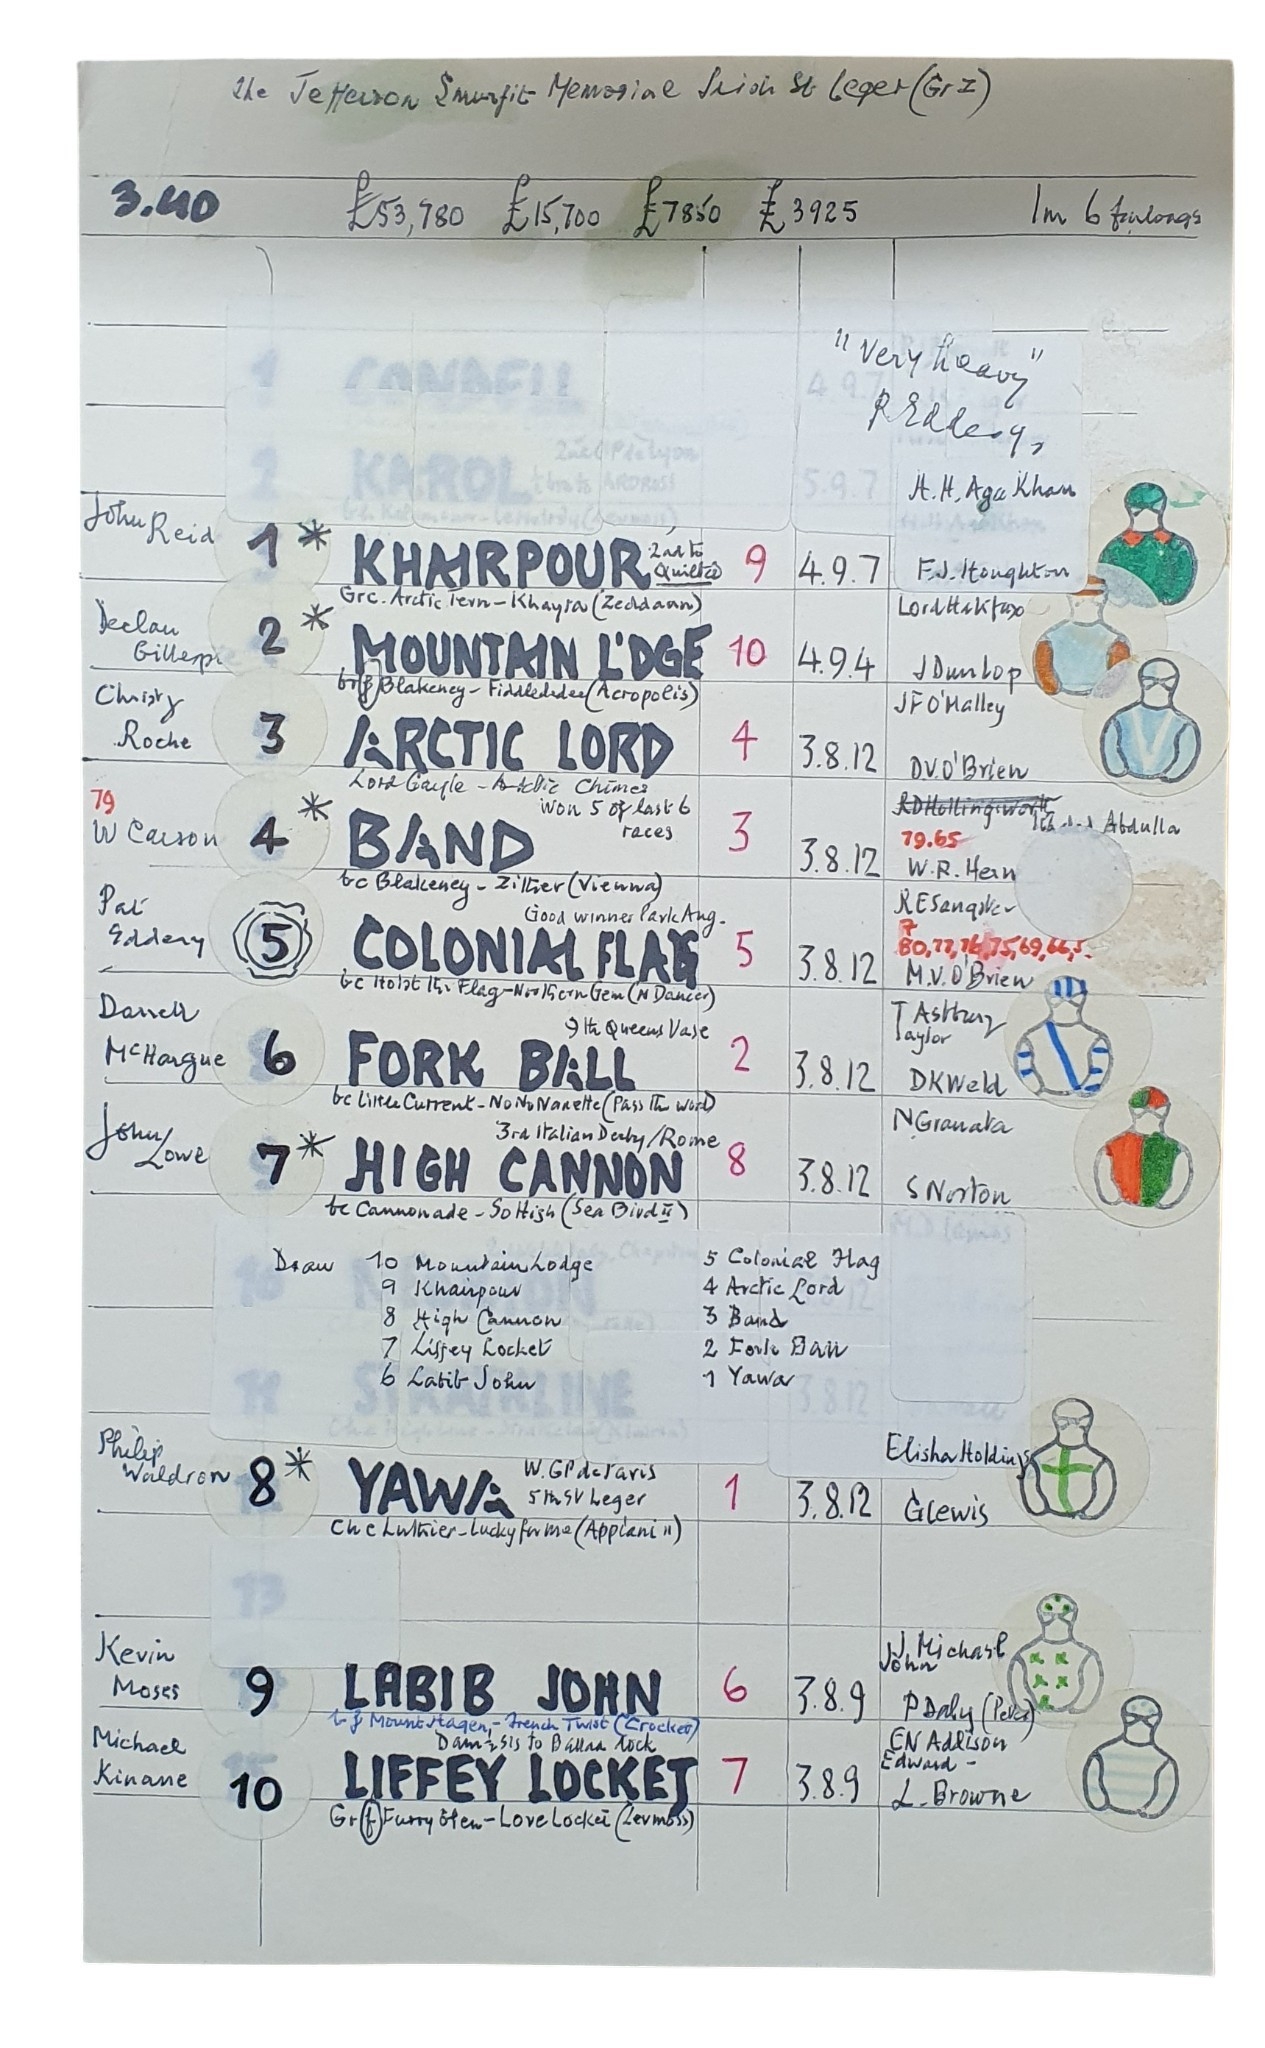 The Jefferson Smurfit Memorial Irish St Leger (Gr I)
3.40 £53,780 £15,700 £7850 £3925 1m 6 furlongs
"Very heavy"
P Eddery,
1 CONDELL 4.9.7
2 KAROL 5.9.7
H.H. Aga Khan
John Reid 1 * KHAIRPOUR 2nd to Quilted 9 4.9.7 F.J. Houghton
Grc. Arctic Tern - Khayra (Zeddaan)
Lord Halifax
Declan Gillespie 2 * MOUNTAIN L'DGE 10 4.9.4 J Dunlop
br f Blakeney - Fiddlededee (Acropolis)
JF O'Malley
Christy Roche 3 ARCTIC LORD 4 3.8.12 DV. O'Brien
Lord Gayle - Arctic Chimes
Won 5 of last 6 races
RD Hollingsworth Abdulla
79 79.65
W Carson 4 * BAND 3 3.8.12 W.R. Hern
bc Blakeney - Zither (Vienna)
Good winner Park Aug.
RESangster
80,77,76,75,69,66,
Pat Eddery 5 COLONIAL FLAG 5 3.8.12 M.V. O'Brien
bc Hoist the Flag - Northern Gem (N Dancer)
9th Queens Vase
T Astbury Taylor
Darrell McHargue 6 FORK BALL 2 3.8.12 DKWeld
bc Little Current - No No Nanette (Pass the word)
3rd Italian Derby/Rome
N Granata
John Lowe 7 * HIGH CANNON 8 3.8.12 S Norton
bc Cannonade - So High (Sea Bird II)
Draw 10 Mountain Lodge 5 Colonial Flag
9 Khairpour 4 Arctic Lord
8 High Cannon 3 Band
7 Liffey Locket 2 Fork Ball
6 Labib John 1 Yawa
11 3.8.12
W. GP de Paris
5th St Leger
Elisha Holdings
Philip Waldron 8 * YAWA 1 3.8.12 G Lewis
Ch c Luthier - Lucky for me (Appiani II)
13
J. Michael John
Kevin Moses 9 LABIB JOHN 6 3.8.9 P Daly (Peter)
b f Mount Hagen - French Twist (Crocket)
Dam ½ sis to Ballad Rock
EN Addison
Edward -
Michael Kinane 10 LIFFEY LOCKET 7 3.8.9 L. Browne
Gr f Furry Glen - Love Locket (Levmoss)